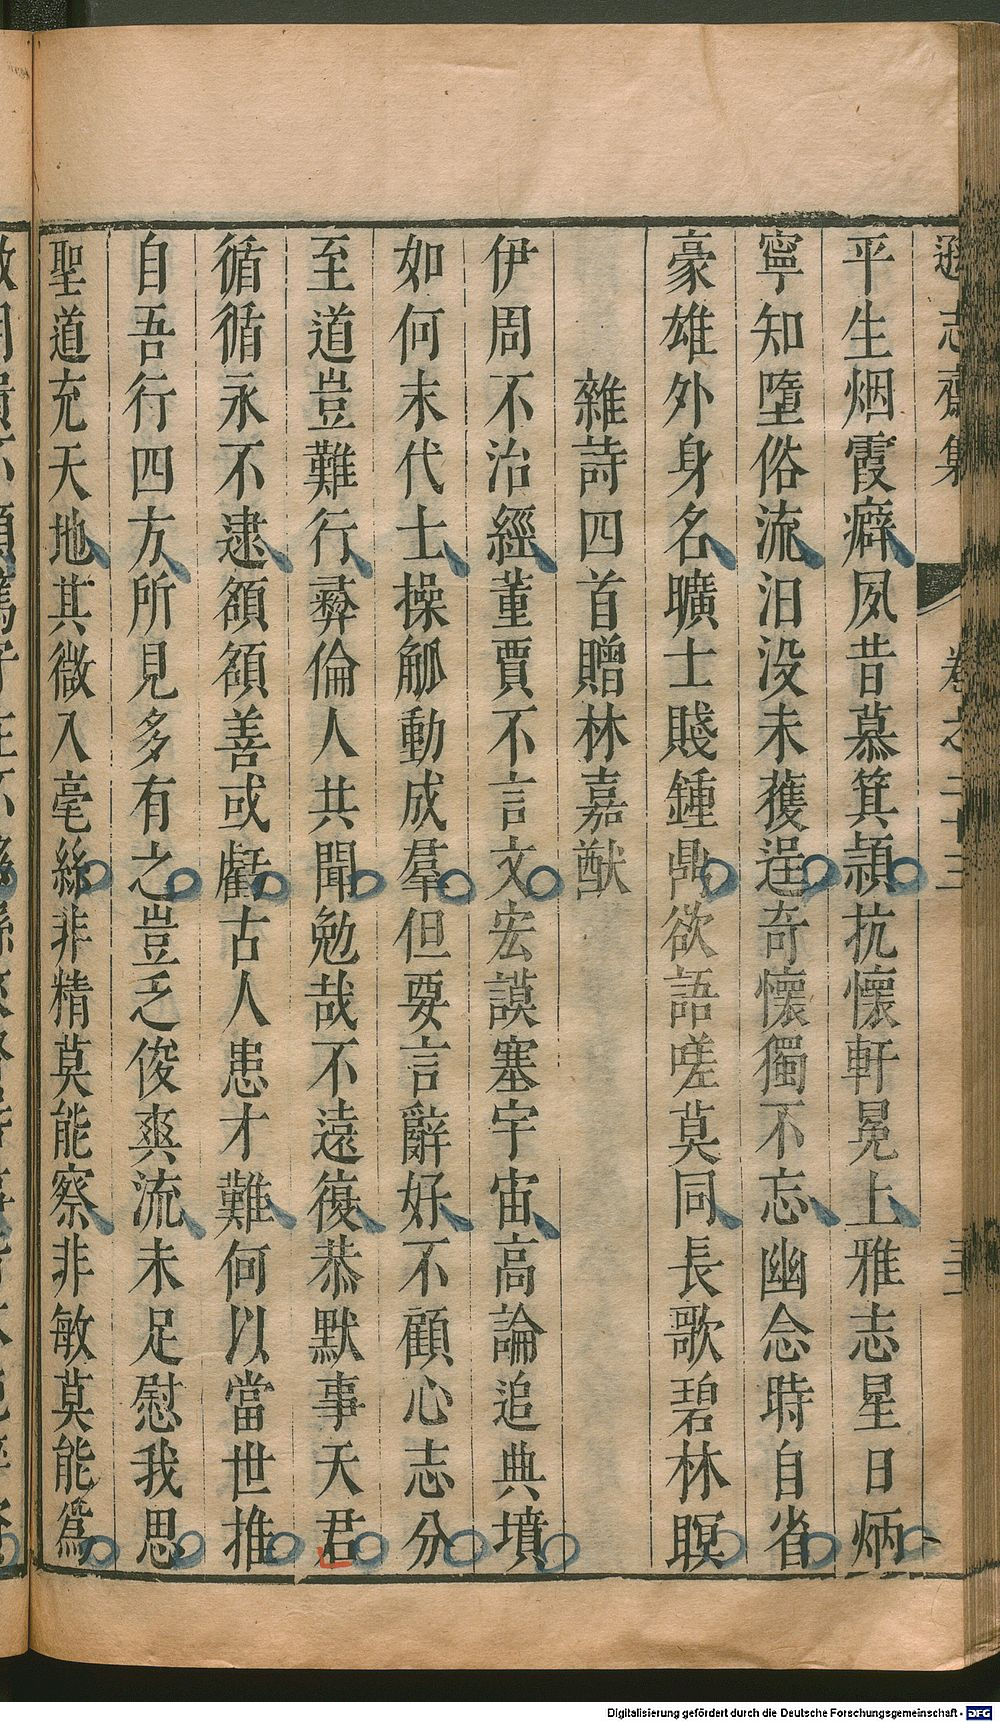 遜志齋集 卷之二十三
平生烟霞癖夙昔慕箕潁抗懷軒冕上雅志星日炳
寧知墮俗流汨没未獲逞奇懷獨不忘幽念時自省
豪雄外身名曠士賤鍾鼎欲語嗟莫同長歌碧林暝
雜詩四首贈林嘉猷
伊周不治經董賈不言文宏謨塞宇宙高論追典墳
如何末代士操觚動成羣但要言辭好不顧心志分
至道豈難行彛倫人共聞勉哉不遠復恭默事天君
循循永不逮額額善或虧古人患才難何以當世推
自吾行四方所見多有之豈乏俊爽流未足慰我思
聖道充天地其微入毫絲非精莫能察非敏莫能爲
Digitalisierung gefördert durch die Deutsche Forschungsgemeinschaft - DFG